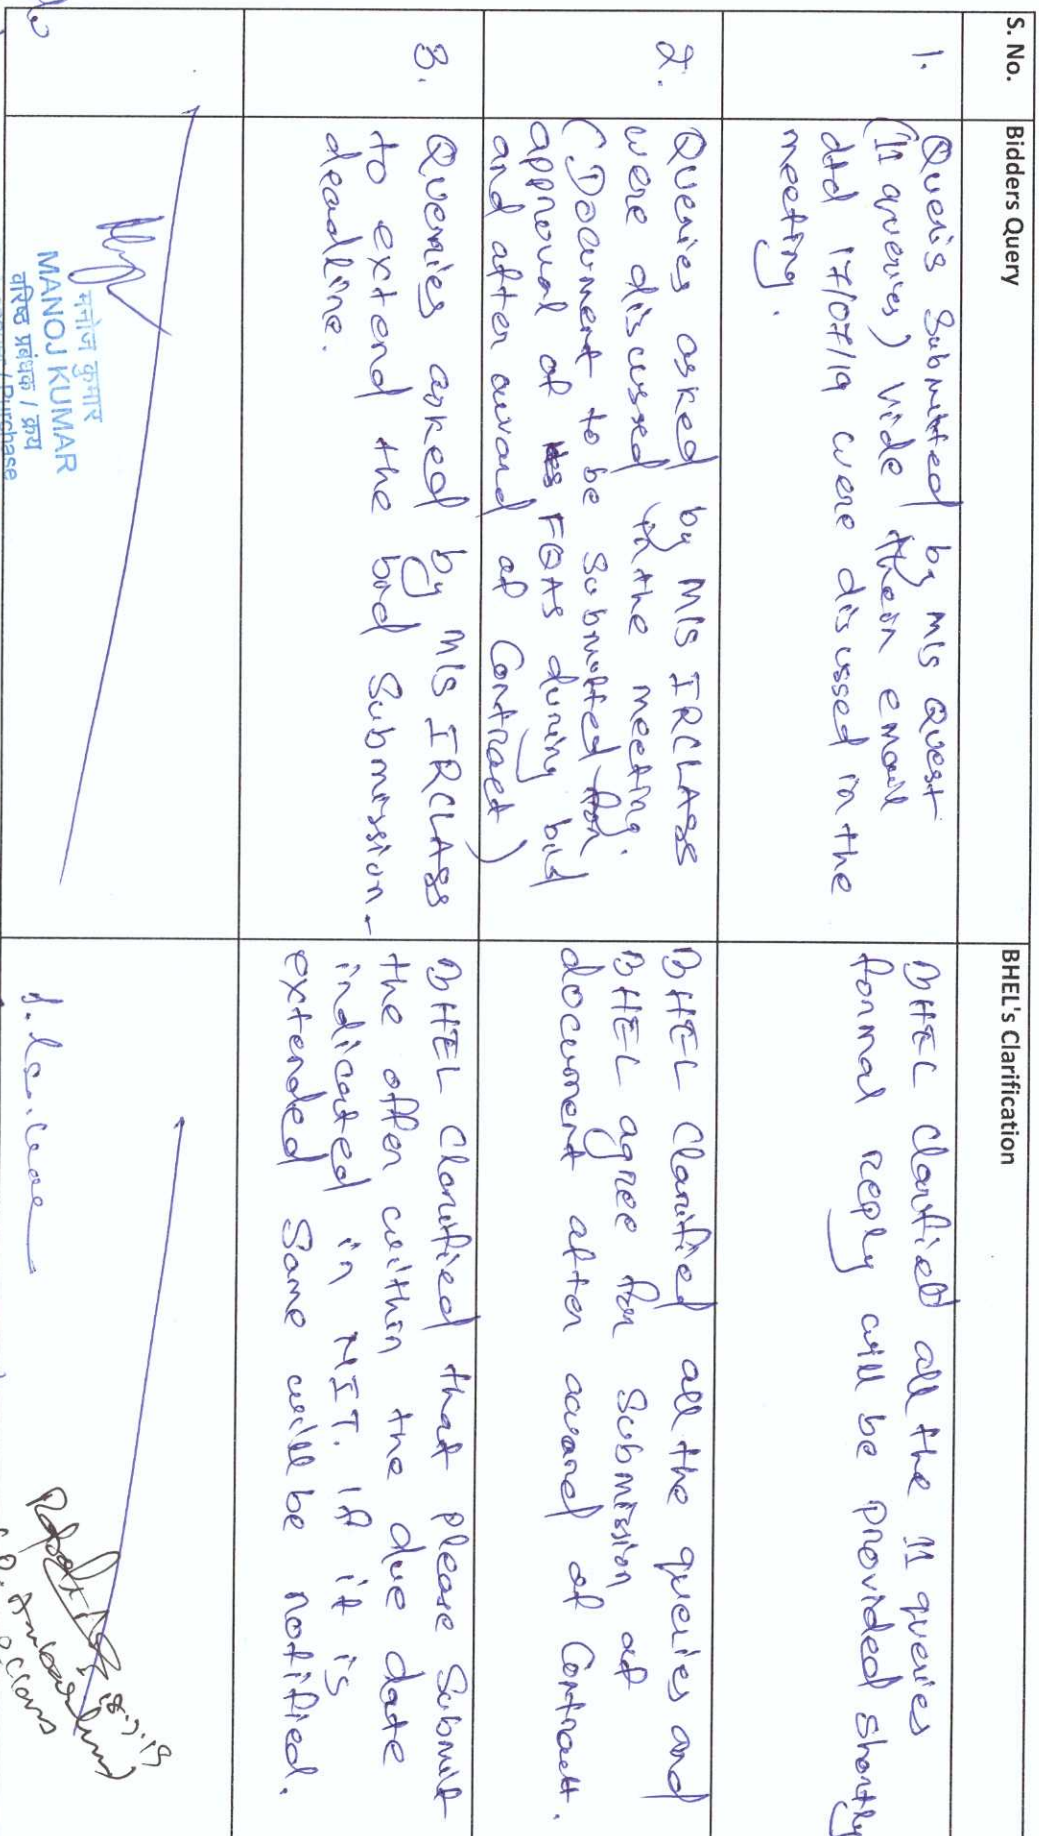 S. No.
Bidders Query
BHEL's Clarification
1.
Queris Submitted by M/s Quest
(11 queries) vide their email
dtd 17/07/19 were discussed in the
meeting.
BHEL Clarified all the 11 queries
formal reply will be provided shortly
2.
Queries asked by M/s IRCLASS
were discussed in the meeting.
(Document to be submitted for
approval of FQAS during bid
and after award of Contract)
BHEL Clarified all the queries and
BHEL agree for Submission of
document after award of Contract.
3.
Queries asked by M/s IRCLASS
to extend the bid Submission-
deadline.
BHEL Clarified that please Submit
the offer within the due date
indicated in NIT. If it is
extended Same will be notified.
मनोज कुमार
MANOJ KUMAR
वरिष्ठ प्रबंधक / क्रय
/ Purchase
18.7.19